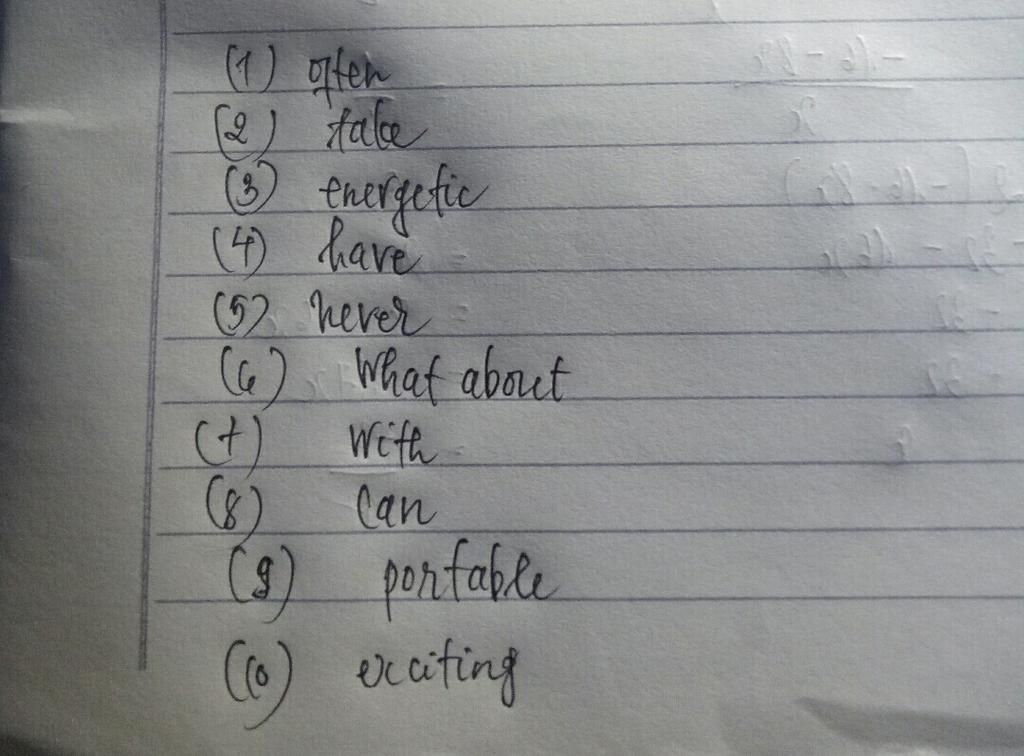 (1) often
(2) take
(3) energetic
(4) have
(5) never
(6) What about
(7) With
(8) Can
(9) portable
(10) exciting